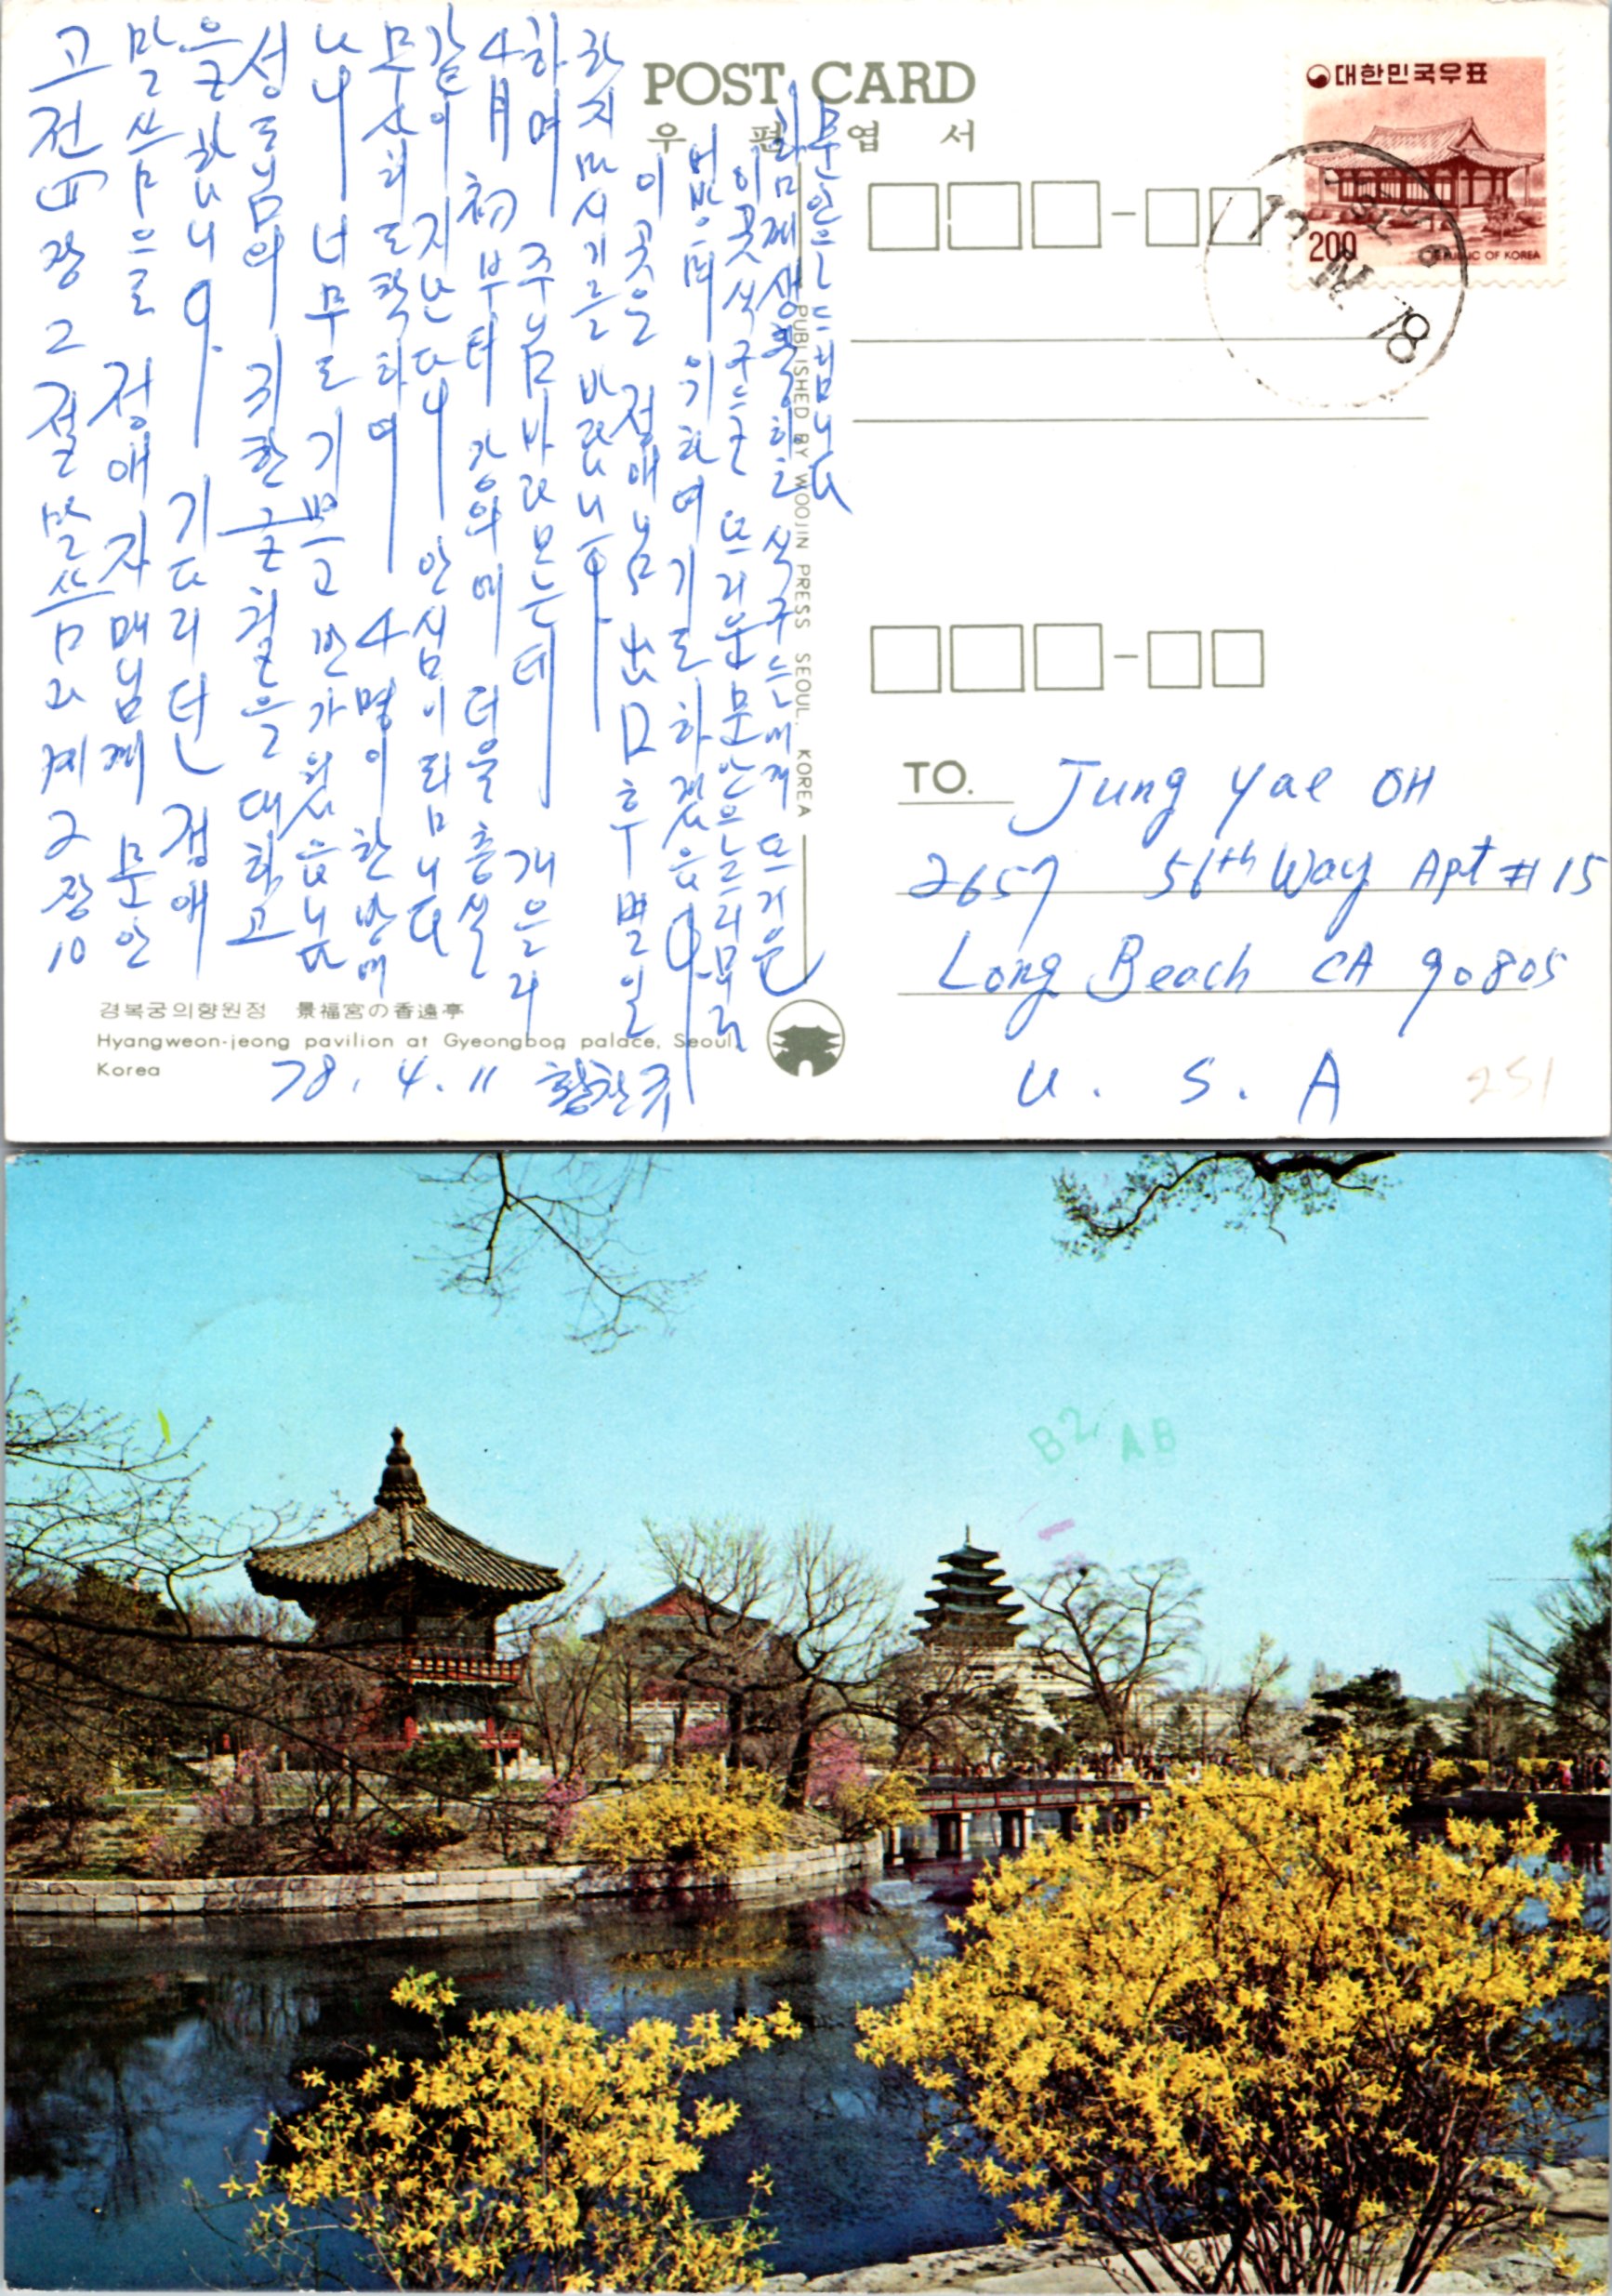 고전 四장 2절 말씀과 계 2장 10
말씀으로 정애 자매님께 문안
을 합니다. 기다리던 정애
성도님의 귀한 글월을 대하고
나니 너무도 기쁘고 반가웠읍니다
무사히 도착하며 4명이 한방에
같이 지난다니 안심이 됩니다
4月初부터 강의에 더욱 충실
하며 주님 바라보는데 게을리
하지 마시기를 바랍니다.
이곳은 정애님 出口 후 별일
없으며 위하여 기도하겠읍니다.
이곳 식구는 뜨거운 문안은
식구는에게 뜨거운
문안으로 드립니다
78. 4. 11 황찬규
POST CARD
우 편 엽 서
대한민국우표
200
REPUBLIC OF KOREA
78
PUBLISHED BY WOOJIN PRESS SEOUL, KOREA
TO. Jung Yae OH
2657 56th Way Apt # 15
Long Beach CA 90805
U. S. A
251
경복궁의향원정 景福宮の香遠亭
Hyangweon-jeong pavilion at Gyeongbog palace, Seoul,
Korea
B2 AB